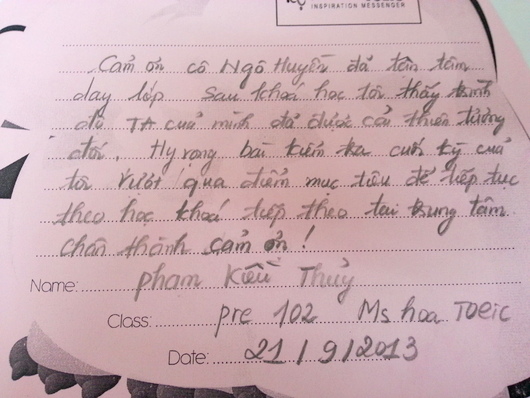 INSPIRATION MESSENGER
Cảm ơn cô Ngô Huyền đã tận tâm
dạy lớp. Sau khoá học tôi thấy trình
độ TA của mình đã được cải thiện tương
đối. Hy vọng bài kiểm tra cuối kỳ của
tôi vượt qua điểm mục tiêu để tiếp tục
theo học khoá tiếp theo tại trung tâm.
Chân thành cảm ơn!
Name: Phạm Kiều Thủy
Class: pre 102 Ms hoa TOEIC
Date: 21/9/2013